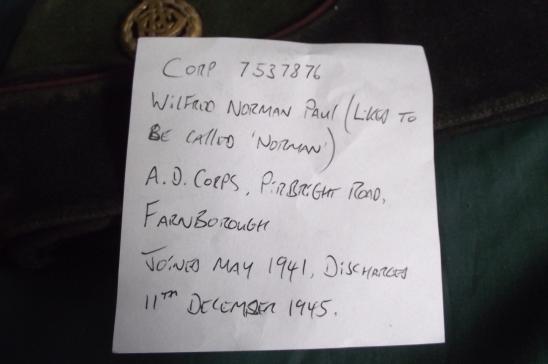 CORP 7537876
WILFRID NORMAN PAUL (LIKED TO
BE CALLED 'NORMAN')
A.D. CORPS, PIRBRIGHT ROAD,
FARNBOROUGH
JOINED MAY 1941, DISCHARGED
11TH DECEMBER 1945.